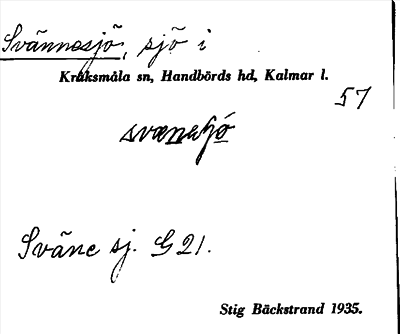 Svännesjö, sjö i
Kråksmåla sn, Handbörds hd, Kalmar l.
57
Sväne sj. G 21.
Stig Bäckstrand 1935.